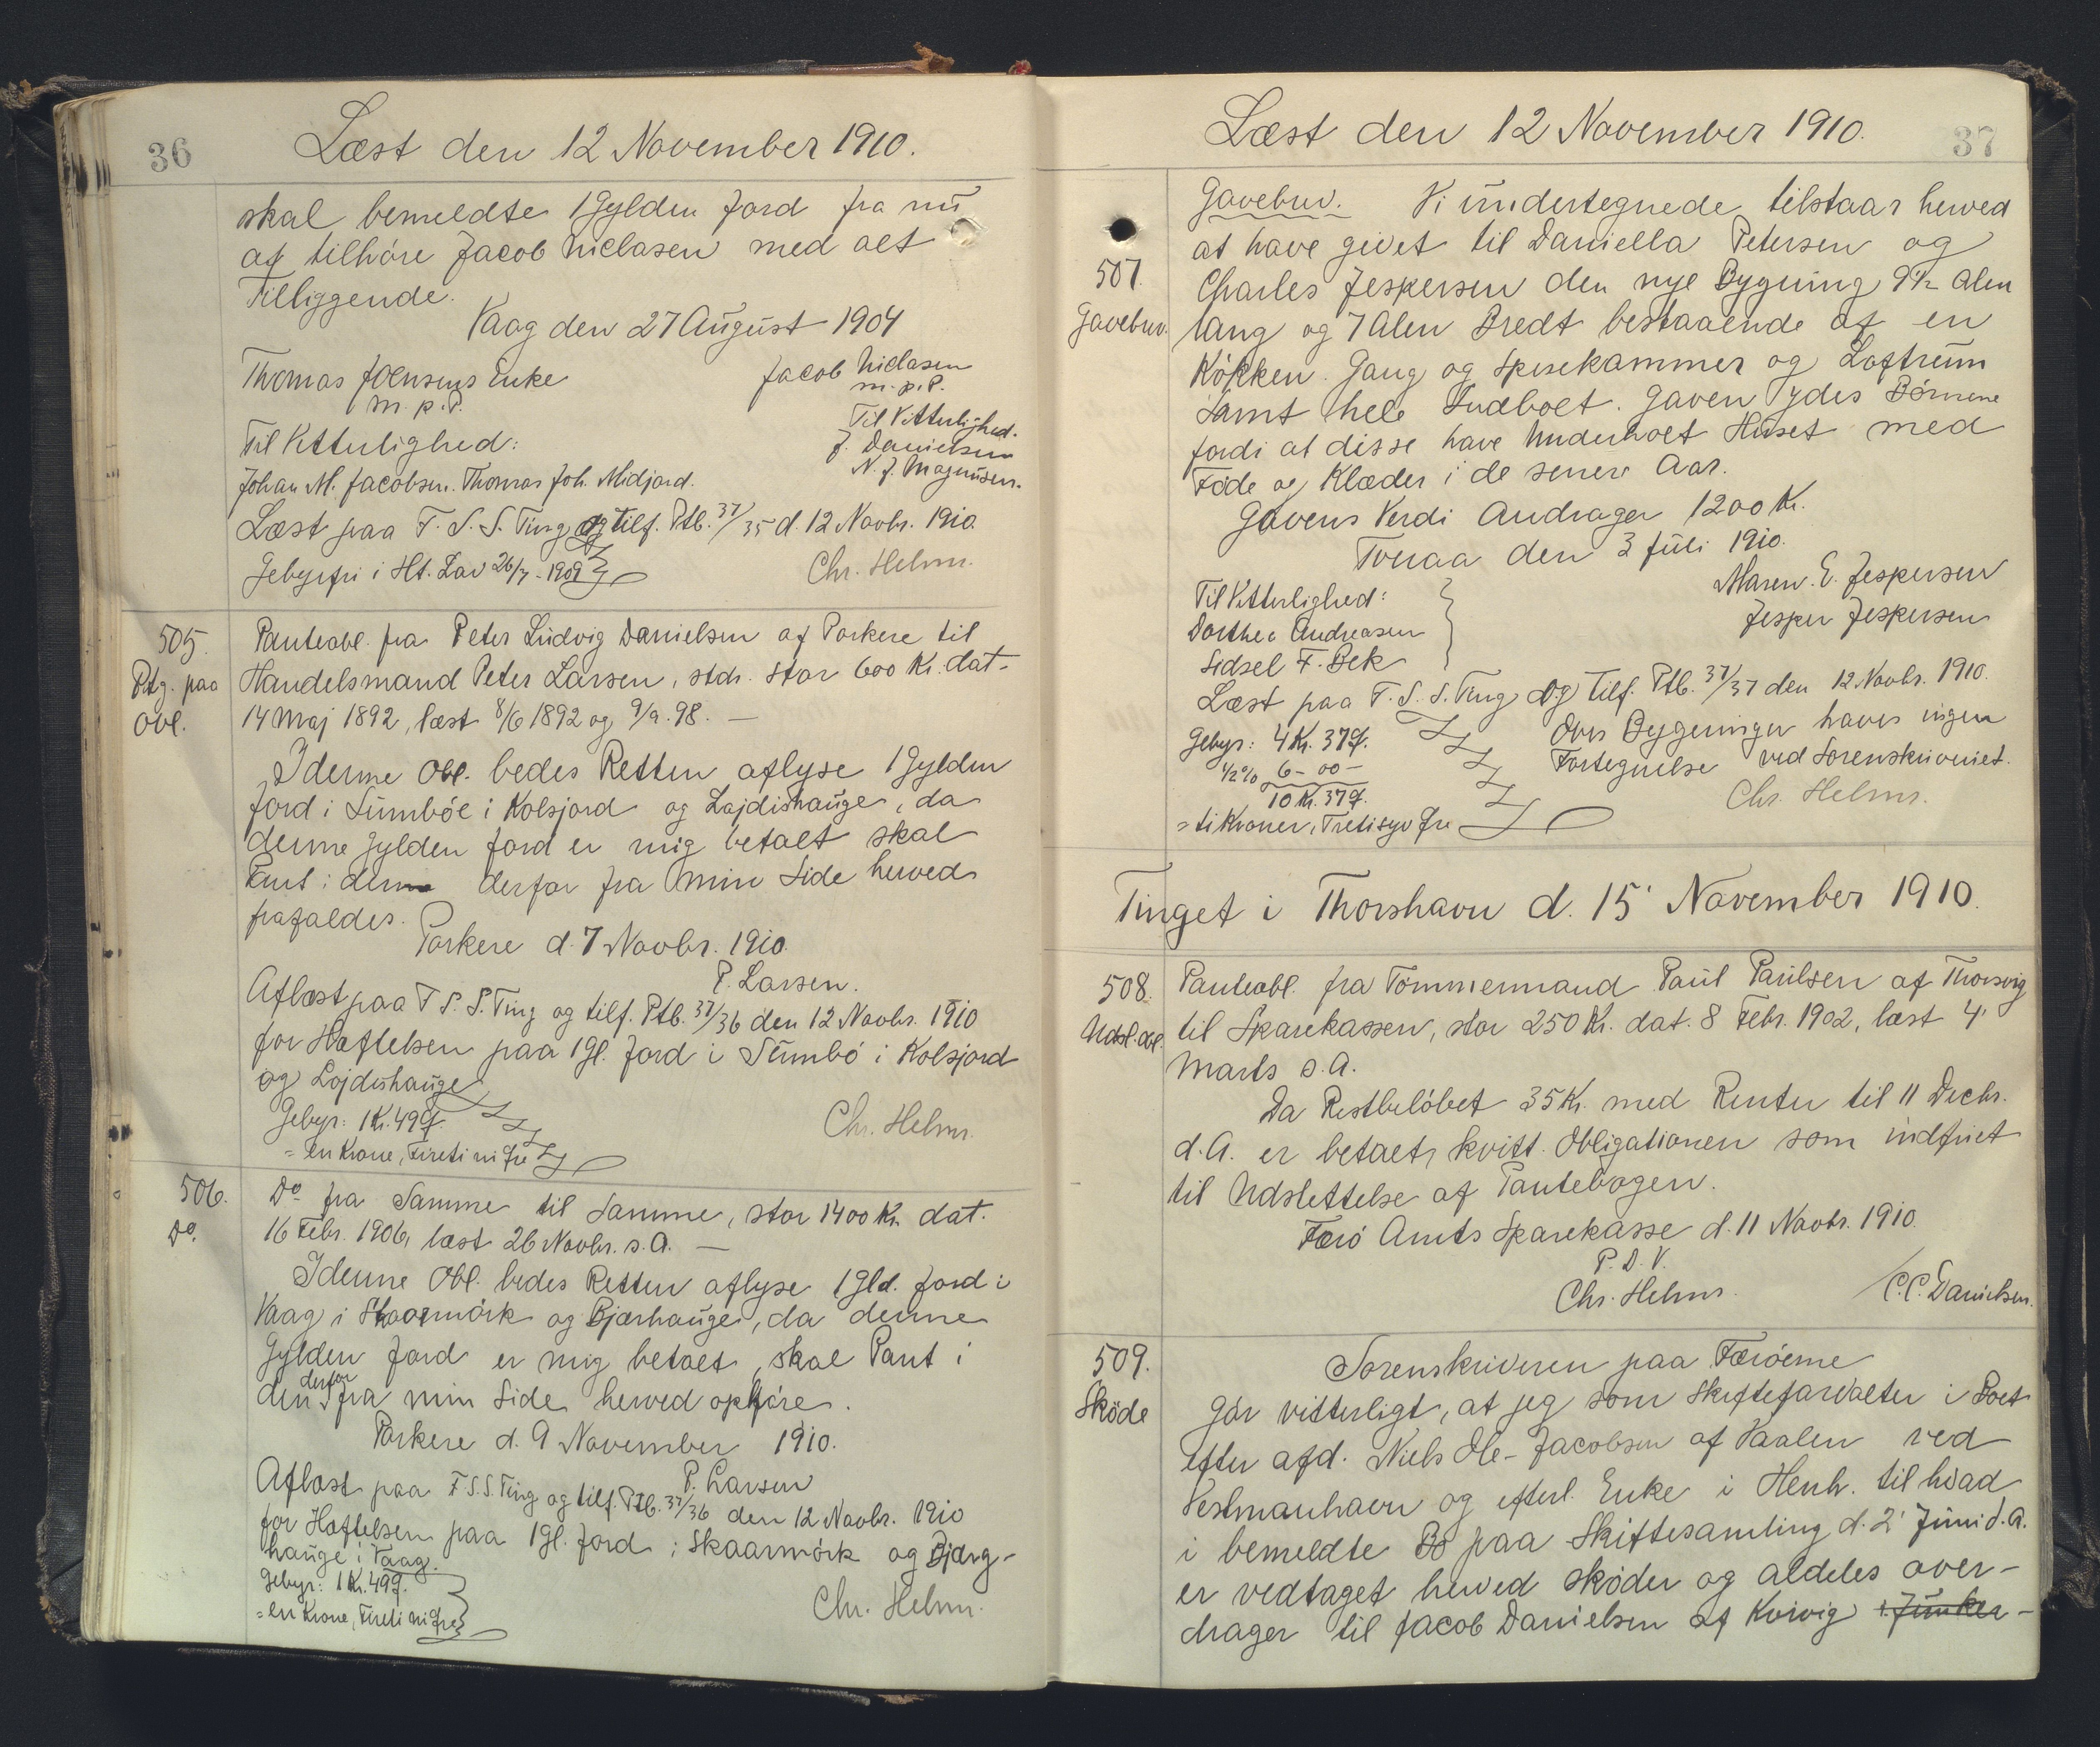 36
Læst den 12 November 1910.
skal bemeldte 1 Gylden Jord fra nu
af tilhøre Jacob Niclasen med alt
Tilliggende.
Vaag den 27 August 1904
Thomas Joensens Enke
m. p. P.
Jacob Niclasen
m. p. P.
Til Vitterlighed:
Johan M. Jacobsen. Thomas Joh. Midjord.
Til Vitterlighed.
J. Danielsen
N. J. Magnusen.
Læst paa F. S. S. Ting og tilf. Ptb. 37/35 d. 12 Novbr. 1910
Gebyrfri i Ht. Lov 26/7 - 1909
Chr. Helms.
505.
Ptg. paa
Obl.
Panteobl. fra Peter Ludvig Danielsen af Porkere til
Handelsmand Peter Larsen, stdr. stor 600 Kr. dat.
14 Maj 1892, læst 8/6 1892 og 9/9. 98. —
I denne Obl. bedes Retten aflyse 1 Gylden
Jord i Sumbøe i Kolsjord og Lojdishauge, da
denne Gylden Jord er mig betalt skal
Pant i denne derfor fra min Side herved
frafaldes.
Porkere d. 7 Novbr. 1910.
P. Larsen.
Aflæst paa F. S. S. Ting og tilf. Ptb. 37/36 den 12 Novbr. 1910
for Hæftelsen paa 1 Gl. Jord i Sumbø i Kolsjord
og Lojdishauge
Gebyr: 1 Kr. 49 Ø.
= en Krone, Fireti ni Øre
Chr. Helms.
506.
Do.
Do fra Samme til Samme, stor 1400 Kr. dat.
16 Febr. 1906, læst 26 Novbr. s. A. —
I denne Obl. bedes Retten aflyse 1 Gld. Jord i
Vaag i Skaarmørk og Bjærhauge, da denne
Gylden Jord er mig betalt, skal Pant i
den derfor fra min Side herved ophøre.
Porkere d. 9 November 1910.
P. Larsen
Aflæst paa F. S. S. Ting og tilf. Ptb. 37/36 den 12 Novbr. 1910
for Hæftelsen paa 1 Gl. Jord i Skaarmørk og Bjærg-
hauge i Vaag.
Gebyr: 1 Kr. 49 Ø.
= en Krone, Fireti ni Øre
Chr. Helms.
Læst den 12 November 1910.
37
507.
Gavebrev.
Gavebrev. Vi undertegnede tilstaar herved
at have givet til Daniella Petersen og
Charles Jespersen den nye Bygning 9 1/2 Alen
lang og 7 Alen Bredt bestaaende af en
Køkken. Gang og Spisekammer og Loftrum
Samt hele Indboet. Gaven ydes Børnene
fordi at disse have Underholt Huset med
Føde og Klæder i de senere Aar.
Gavens Verdi Andrager 1200 Kr.
Tveraa den 3 Juli 1910.
Til Vitterlighed:
Dorthea Andreasen
Sidsel F. Bek
Maren. E. Jespersen
Jesper Jespersen
Læst paa F. S. S. Ting og Tilf. Ptb. 37/37 den 12 Novbr. 1910.
Gebyr: 4 Kr. 37 Ø.
1/2 % 6 - 00 -
10 Kr. 37 Ø.
= ti Kroner, Tretisyv Øre
Over Bygninger haves ingen
Fortegnelse ved Sorenskriveriet.
Chr. Helms.
Tinget i Thorshavn d. 15' November 1910.
508.
Udsl. obl.
Panteobl. fra Tømmermand Paul Paulsen af Thorsvig
til Sparekassen, stor 250 Kr. dat. 8 Febr. 1902, læst 4'
Marts s. A.
Da Restbeløbet 35 Kr. med Renter til 11 Decbr.
d. A. er betalt, kvitt. Obligationen som indfriet
til Udslettelse af Pantebogen.
Færø Amts Sparekasse d. 11 Novbr. 1910.
P. D. V.
Chr. Helms.
C. C. Danielsen.
509.
Skøde
Sorenskriveren paa Færøerne
Gør vitterligt, at jeg som Skifteforvalter i Boet
efter afd. Niels Ole Jacobsen af Vaalen ved
Vestmanhavn og efterl. Enke i Henh. til hvad
i bemeldte Bo paa Skiftesamling d. 2' Juni d. A.
er vedtaget herved skøder og aldeles over-
drager til Jacob Danielsen af Kvivig i Junker-